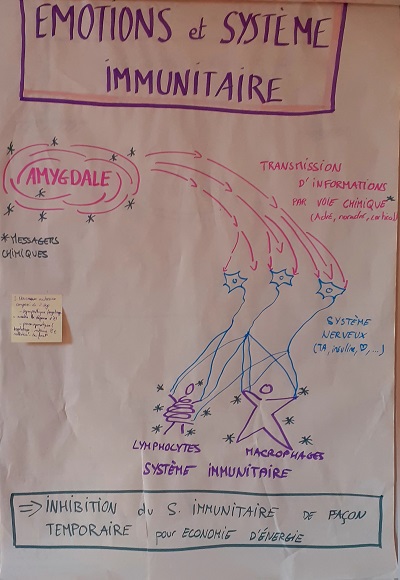 EMOTIONS et SYSTÈME
IMMUNITAIRE
AMYGDALE
TRANSMISSION
D'INFORMATIONS
PAR VOIE CHIMIQUE*
* MESSAGERS
CHIMIQUES
SYSTÈME
NERVEUX
(TA, insuline, ♡, ...)
LYMPHOLYTES
MACROPHAGES
SYSTÈME IMMUNITAIRE
=> INHIBITION du S. IMMUNITAIRE DE FAÇON
TEMPORAIRE pour ECONOMIE D'ÉNERGIE